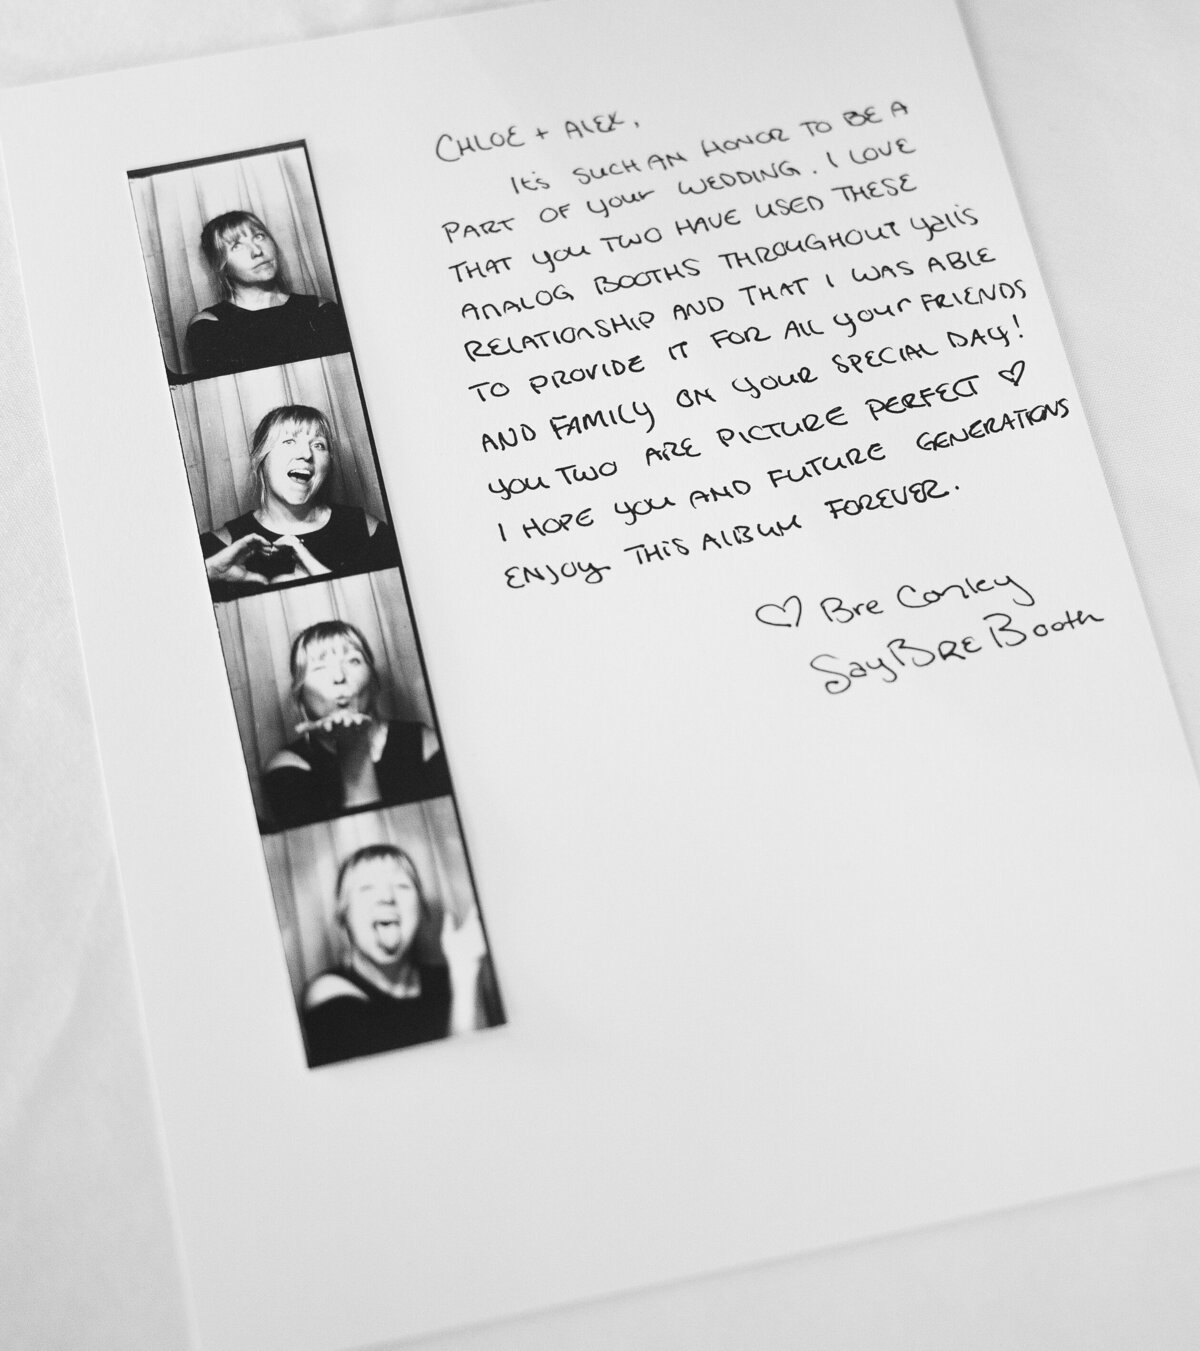 CHLOE + ALEX,
It's SUCH AN HONOR TO BE A
PART OF your WEDDING. I LOVE
THAT you TWO HAVE USED THESE
ANALOG BOOTHS THROUGHOUT yall's
RELATIONSHIP AND THAT I WAS ABLE
TO PROVIDE IT FOR ALL your FRIENDS
AND FAMILY ON YOUR SPECIAL DAY!
YOU TWO ARE PICTURE PERFECT ♡
I HOPE you AND FUTURE GENERATIONS
ENJOY THIS ALBUM FOREVER.
♡ Bre Conley
SayBRE Booth